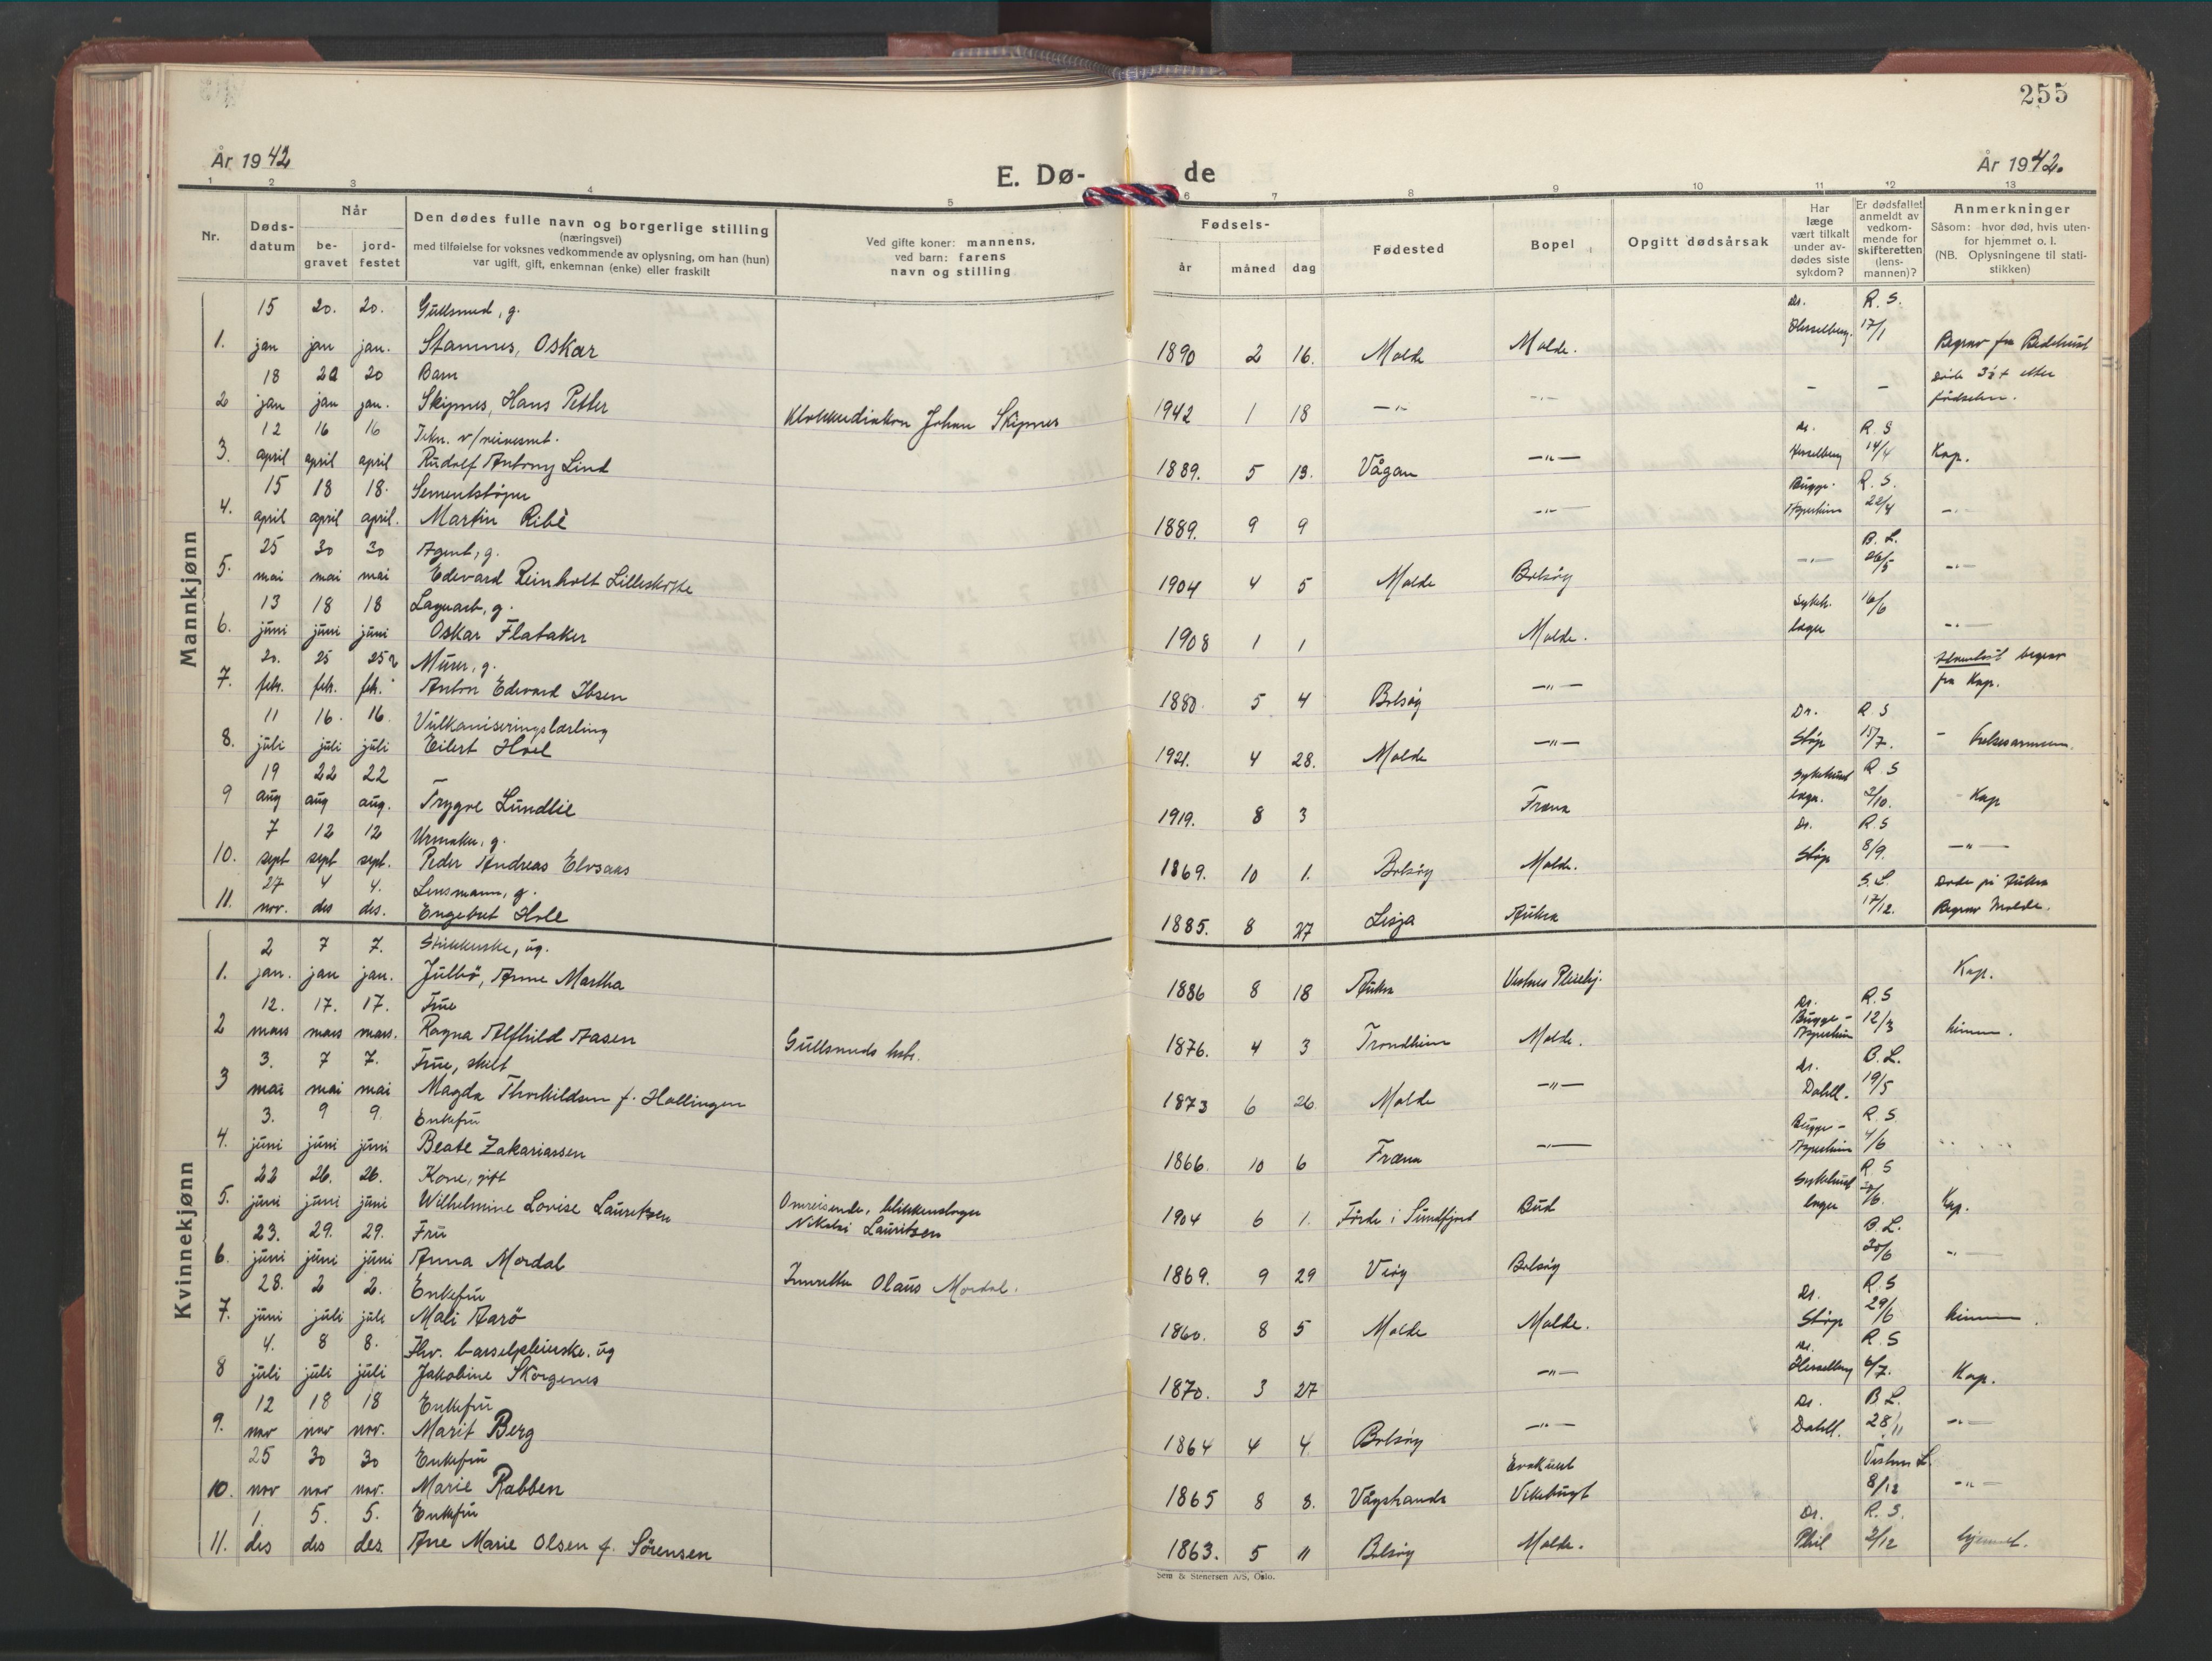 255
År 1942
E. Dø-
de
År 1942.
1 2 3 4 5 6 7 8 9 10 11 12 13
Nr.
Døds-
datum
Når
be-
gravet
jord-
festet
Den dødes fulle navn og borgerlige stilling
(næringsvei)
med tilføielse for voksnes vedkommende av oplysning, om han (hun)
var ugift, gift, enkemnan (enke) eller fraskilt
Ved gifte koner: mannens,
ved barn: farens
navn og stilling
Fødsels-
år måned dag
Fødested
Bopel
Opgitt dødsårsak
Har
læge
vært tilkalt
under av-
dødes siste
sykdom?
Er dødsfallet
anmeldt av
vedkom-
mende for
skifteretten
(lens-
mannen)?
Anmerkninger
Såsom: hvor død, hvis uten-
for hjemmet o. l.
(NB. Oplysningene til stati-
stikken)
Mannkjønn
15 20. 20. Gullsmed, g. Dr. R. S.
1. jan jan jan. Stamnes, Oskar 1890 2 16. Molde Molde. 17/1
18 20 20 Barn
2 jan jan jan. Skipnes, Hans Petter Johan Skipnes 1942 1 18 —"— —"— – –
fødselen.
12 16 16 Dr. R. S
3. april april april Rudolf Antony Lind 1889. 5 13. Vågan —"— Hesselberg 14/4 Kap.
15 18 18. Sementstøper Bugge- R. S.
4. april april april. Martin Ribè 1889. 9 9 —"— 22/4 —"—
25 30 30 Agent, g. B. L.
5. mai mai mai Edevard Reinholt Lilleskotte 1904 4 5 Molde Bolsøy —"— 26/5 —"—
13 18 18 Lagerarb, g. Sykeh.
6. juni juni juni Oskar Flataker 1908 1 1 Molde. læge 16/6 —"—
20. 25 25 Murer, g. begrav
7. feb. feb. feb. Anton Edevard Ibsen 1880 5 4 Bolsøy —"— fra Kap.
11 16. 16. Vulkaniseringslærling Dr. R. S
8. juli juli juli Eilert Hoel 1921. 4 28. Molde —"— Støp 15/7. Frelsesarmeen.
19 22 22 Sykehus R. S
9 aug aug aug. Trygve Lundlie 1919. 8 3 Fræna læge. 2/10. Kap
7 12 12 Urmaker, g. Dr. R. S
10. sept sept sept. Peder Andreas Elvsaas 1869. 10 1. Bolsøy Molde. Støp 8/9. —"—
27 4 4. Lensmann, g. S. L. Døde på Aukra
11. nov. des des. Engebret Hole 1885. 8 27 Lesja Aukra 17/12. Begrav Molde.
Kvinnekjønn
2 7 7. ug.
1. jan. jan jan. Julbø, Anne Martha 1886 8 18 Aukra Vestnes Pleiehj. Kap.
12. 17. 17. Frue Dr. R. S
2 mars mars mars. Ragna Alfhild Aasen Gullsmeds hstr. 1876. 4 3 Trondheim Molde. Bugge- 12/3
3. 7 7. Frue, skilt Dr. B. L.
3 mai mai mai Magda Thorkildsen f. Hollingen 1873 6 26 Molde —"— Dahll. 19/5
3. 9 9. Enkefru Bugge- R. S.
4. juni juni juni Beate Zakariassen 1866. 10 6 Fræna —"— 4/6
22 26. 26. Kone, gift Omreisende, blikkenslager Sykehus R. S
5. juni juni juni Wilhelmine Lovise Lauritzen Nikolai Lauritzen 1904 6 1. Førde i Sundfjord Bud læge Kap.
23. 29. 29. Fru B. L.
6. juni juni juni Anna Mordal Olaus Mordal. 1869. 9 29 Veøy Bolsøy 30/6 —"—
28. 2 2. Enkefru Dr. R. S
7. juni juli juli Mali Aarø 1860. 8 5 Molde Molde. Støp 29/6
4. 8 8. Fhv. barselpleierske. ug Dr. R. S
8 juli juli juli Jakobine Skorgenes 1870. 3 27 —"— Hesselberg 6/7. Kap.
12 18 18 Enkefru Dr. B. L.
9. nov nov nov. Marit Berg 1864 4 4. Bolsøy —"— Dahll. 28/11 —"—
25 30 30 Enkefru Evakuert Vestnes L.
10. nov nov nov. Marie Rabben 1865 8 8. Vågstranda Vikebugt 8/12 —"—
1. 5. 5. Enkefru Dr. R. S.
11. des des des Ane Marie Olsen f. Sörensen 1863. 5 11 Bolsøy Molde. 2/12 hjemmet.
Sem & Stenersen A/S, Oslo.